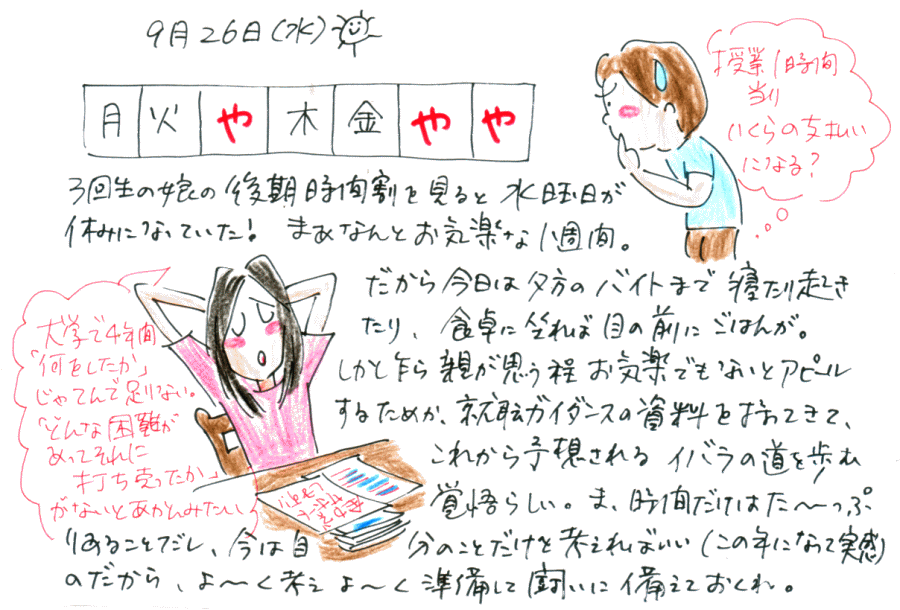 9月26日(水)
月 火 や 木 金 や や
授業1時間
当り
いくらの支払い
になる?
3回生の娘の後期時間割を見ると水曜日が
休みになっていた! まあなんとお気楽な1週間。
だから今日は夕方のバイトまで寝たり起き
たり、食卓に坐れば目の前にごはんが。
しかし乍ら親が思う程お気楽でもないとアピール
するためか、就職ガイダンスの資料をもってきて、
これから予想されるイバラの道を歩む
覚悟らしい。ま、時間だけはた〜っぷ
りあることだし、今は自分のことだけを考えればいい(この年になって実感)
のだから、よ〜く考えよ〜く準備して闘いに備えておくれ。
大学で4年間
「何をしたか」
じゃてんで足りない。
「どんな困難が
あってそれに
打ち克ったか」
がないとあかんみたい